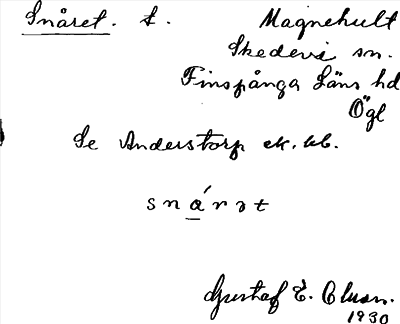 Snåret. t.
Magnehult
Skedevi sn.
Finspånga Läns hd
Ögl
Se Anderstorp ek. kb.
snárət
Gustaf E. Clason.
1930